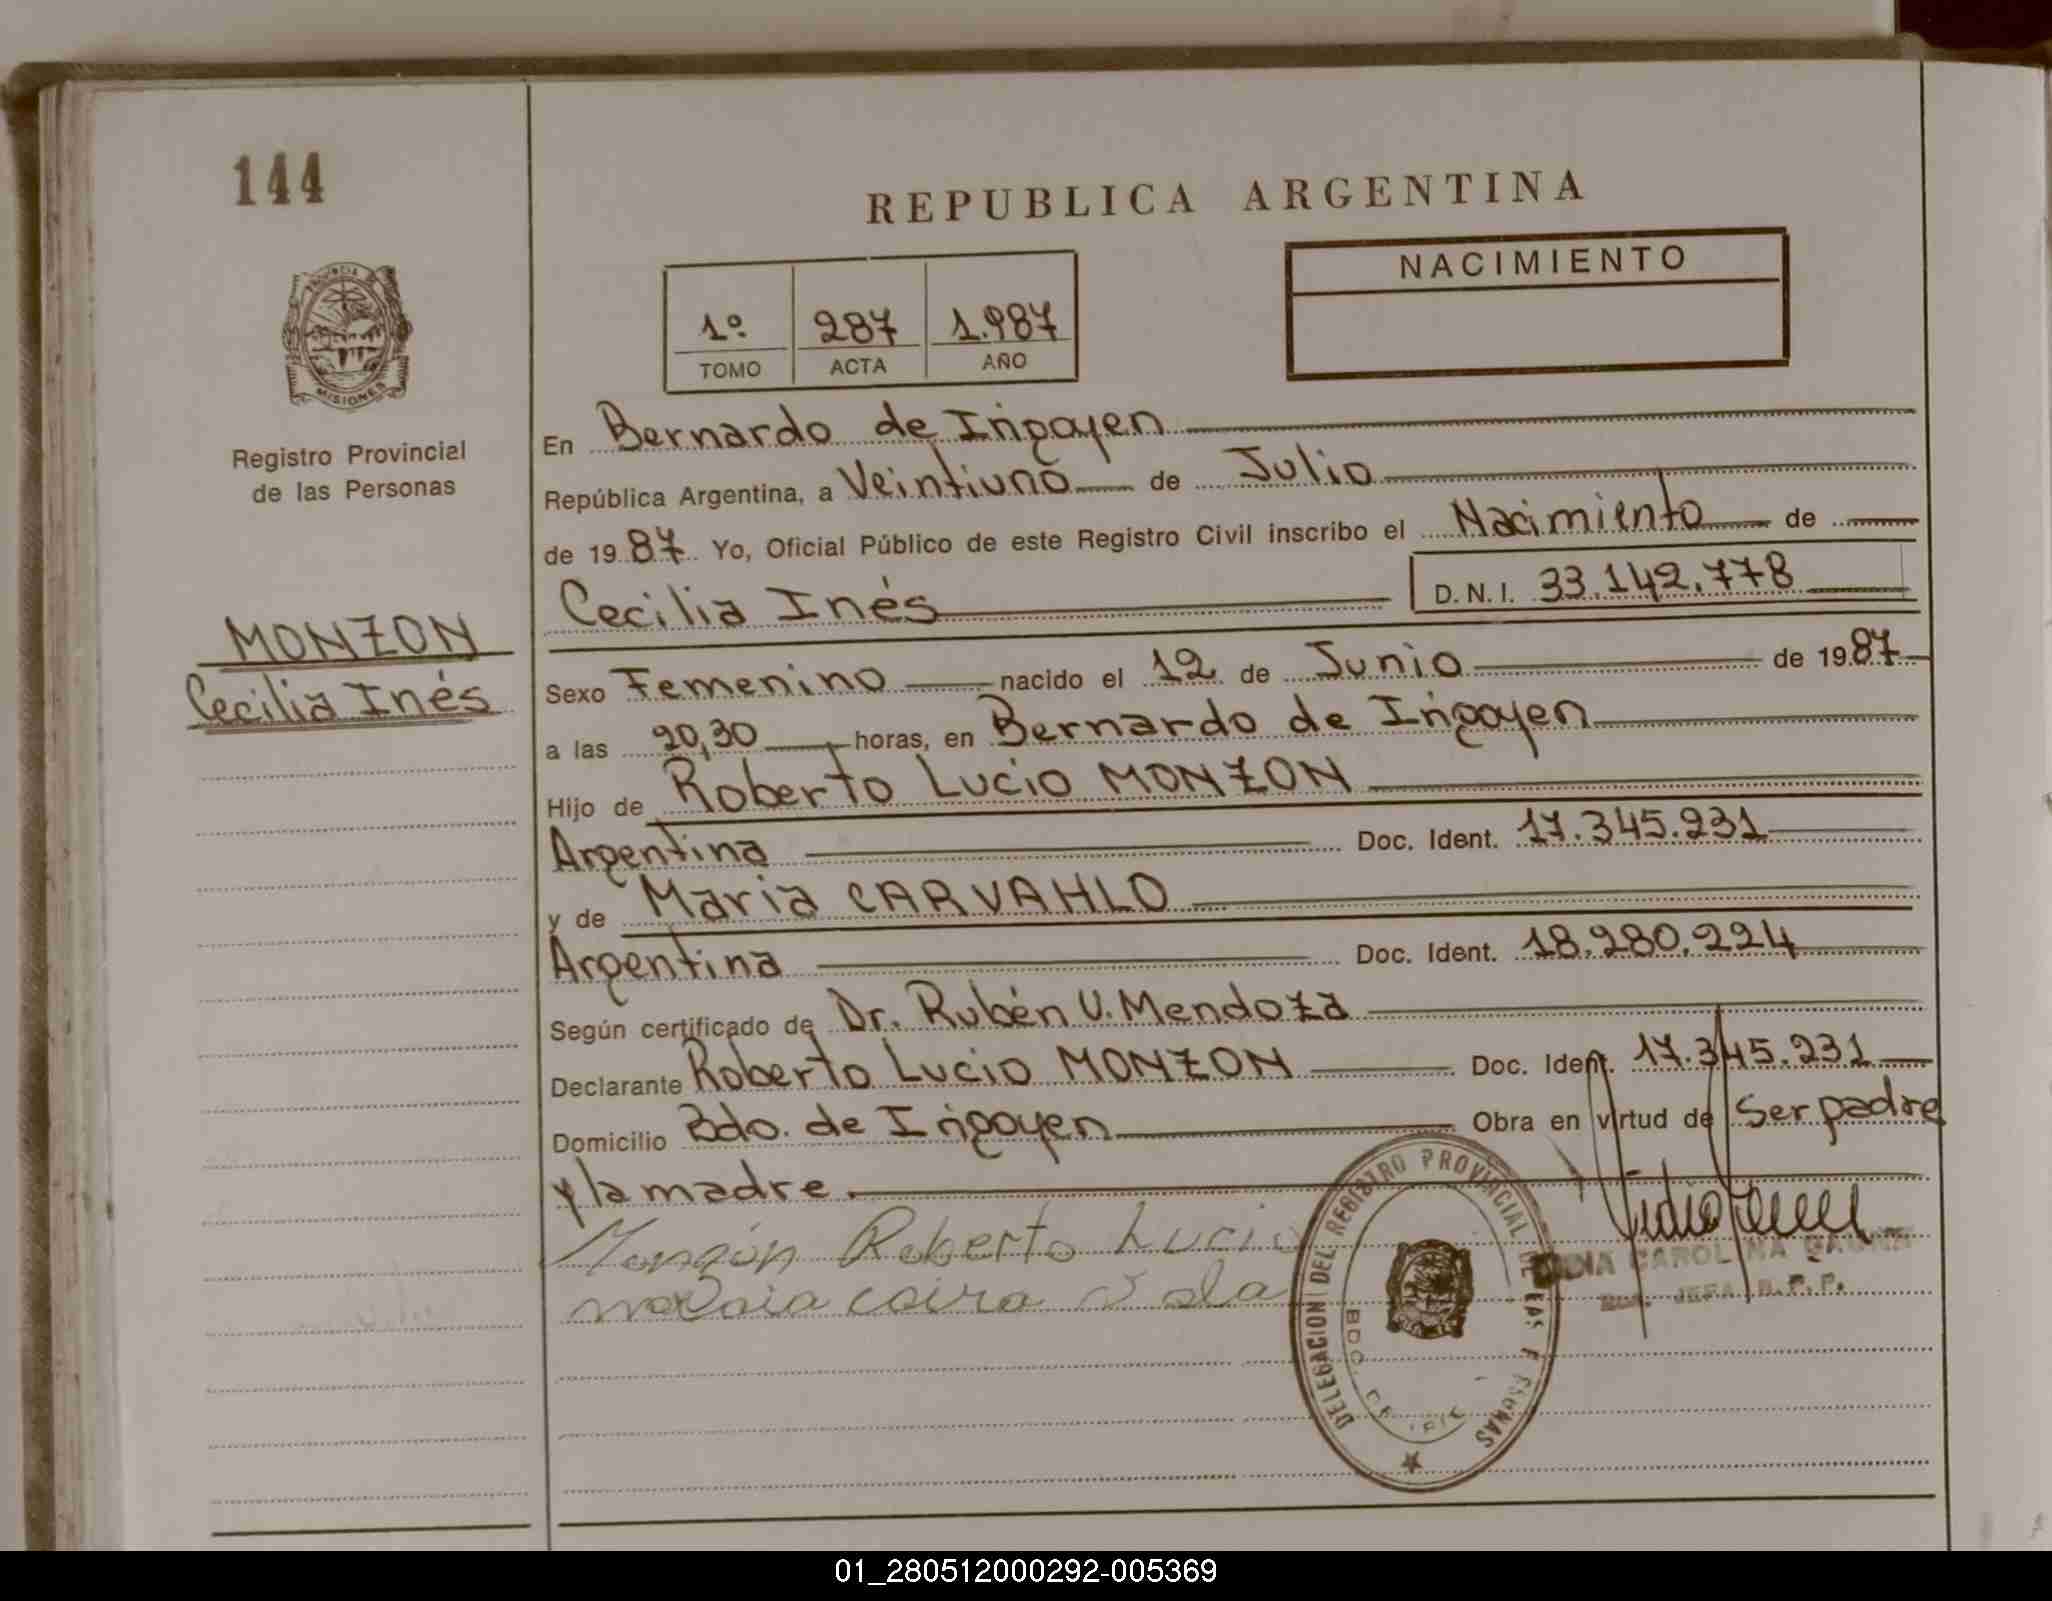 144
REPUBLICA ARGENTINA
NACIMIENTO
1º 287 1.987
TOMO ACTA AÑO
PROVINCIA DE MISIONES
Registro Provincial
de las Personas
MONZON
Cecilia Inés
En Bernardo de Irigoyen
República Argentina, a Veintiuno de Julio
de 19 87 Yo, Oficial Público de este Registro Civil inscribo el Nacimiento de
Cecilia Inés D.N.I. 33.142.778
Sexo Femenino nacido el 12 de Junio de 19 87
a las 20,30 horas, en Bernardo de Irigoyen
Hijo de Roberto Lucio MONZON
Argentina Doc. Ident. 17.345.231
y de Maria CARVAHLO
Argentina Doc. Ident. 18.280.224
Según certificado de Dr. Rubén V. Mendoza
Declarante Roberto Lucio MONZON Doc. Ident. 17.345.231
Domicilio Bdo. de Irigoyen Obra en virtud de Ser padre
y la madre.
Monzón Roberto Lucio
DELEGACION DEL REGISTRO PROVINCIAL DE LAS PERSONAS
BDO. DE
CAROLINA
JEFA R.P.P.
01_280512000292-005369